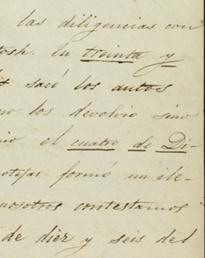 las diligencias con
tosh. En treinta y
sacó los autos
no los devolvió sino
el cuatro de Di-
formó un ile-
nosotros contestamos
de diez y seis del